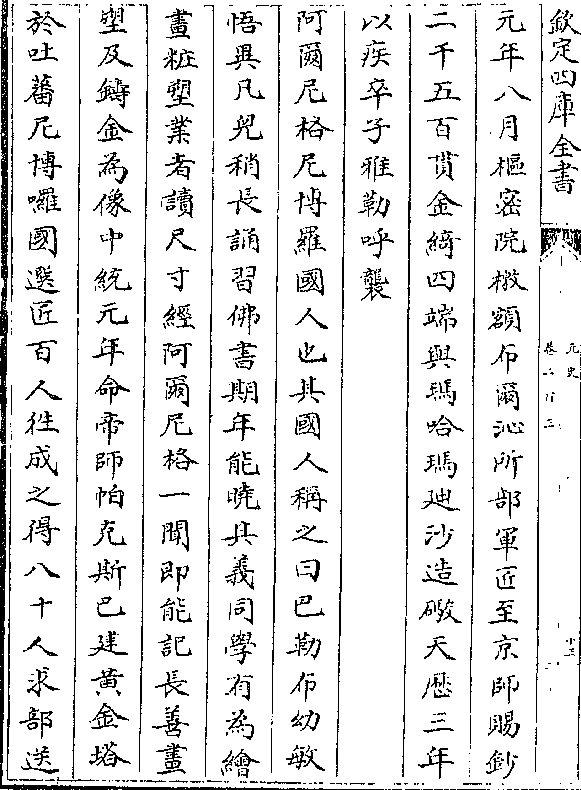 欽定四庫全書
元史
卷二百三
元年八月樞密院檄額布爾沁所部軍匠至京師賜鈔
二千五百貫金綺四端與瑪哈瑪廸沙造礮天歷三年
以疾卒子雅勒呼襲
阿爾尼格尼博羅國人也其國人稱之曰巴勒布幼敏
悟異凡兒稍長誦習佛書期年能曉其義同學有為繪
畫粧塑業者讀尺寸經阿爾尼格一聞即能記長善畫
塑及鑄金為像中統元年命帝師帕克斯巴建黃金塔
於吐蕃尼博囉國選匠百人徃成之得八十人求部送